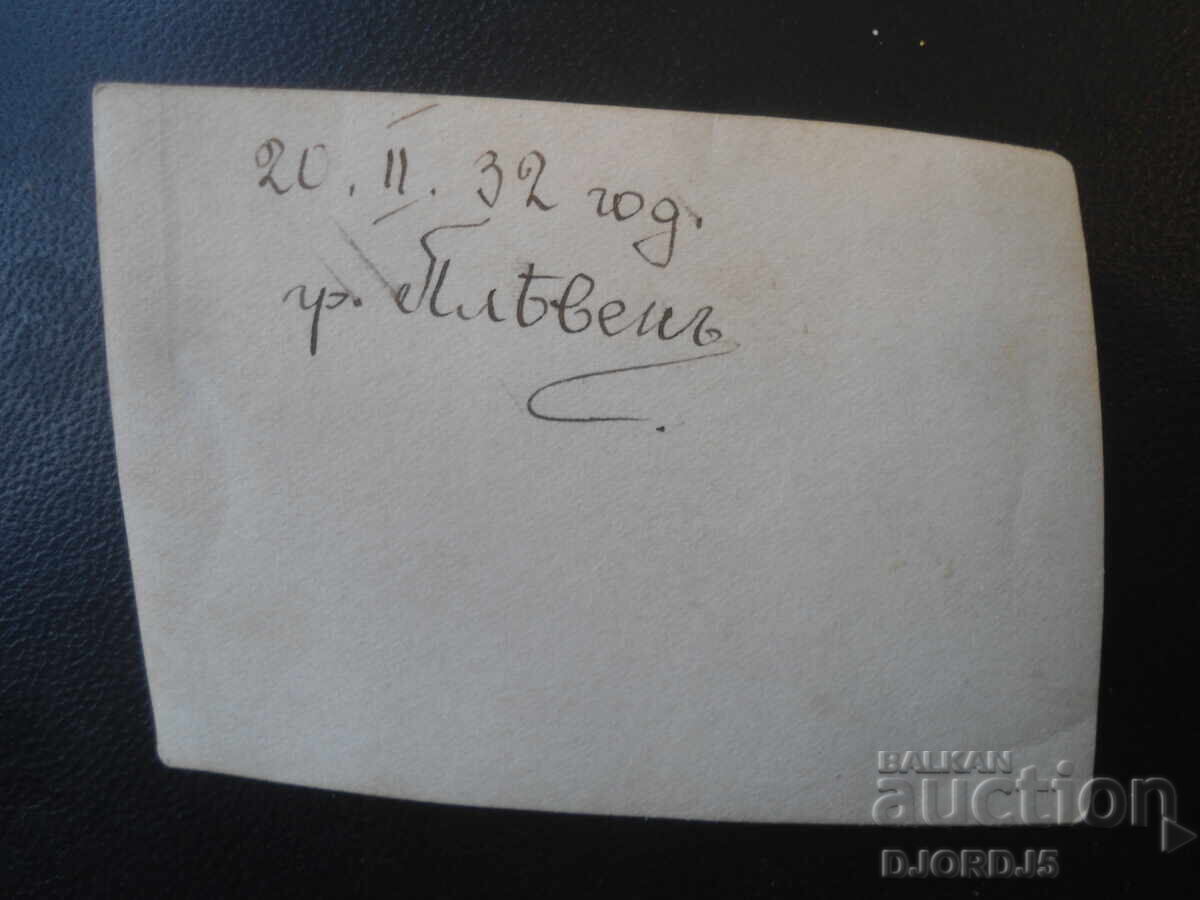 20. II. 32 год.
гр. Плѣвенъ
BALKAN
auction
DJORDJ5